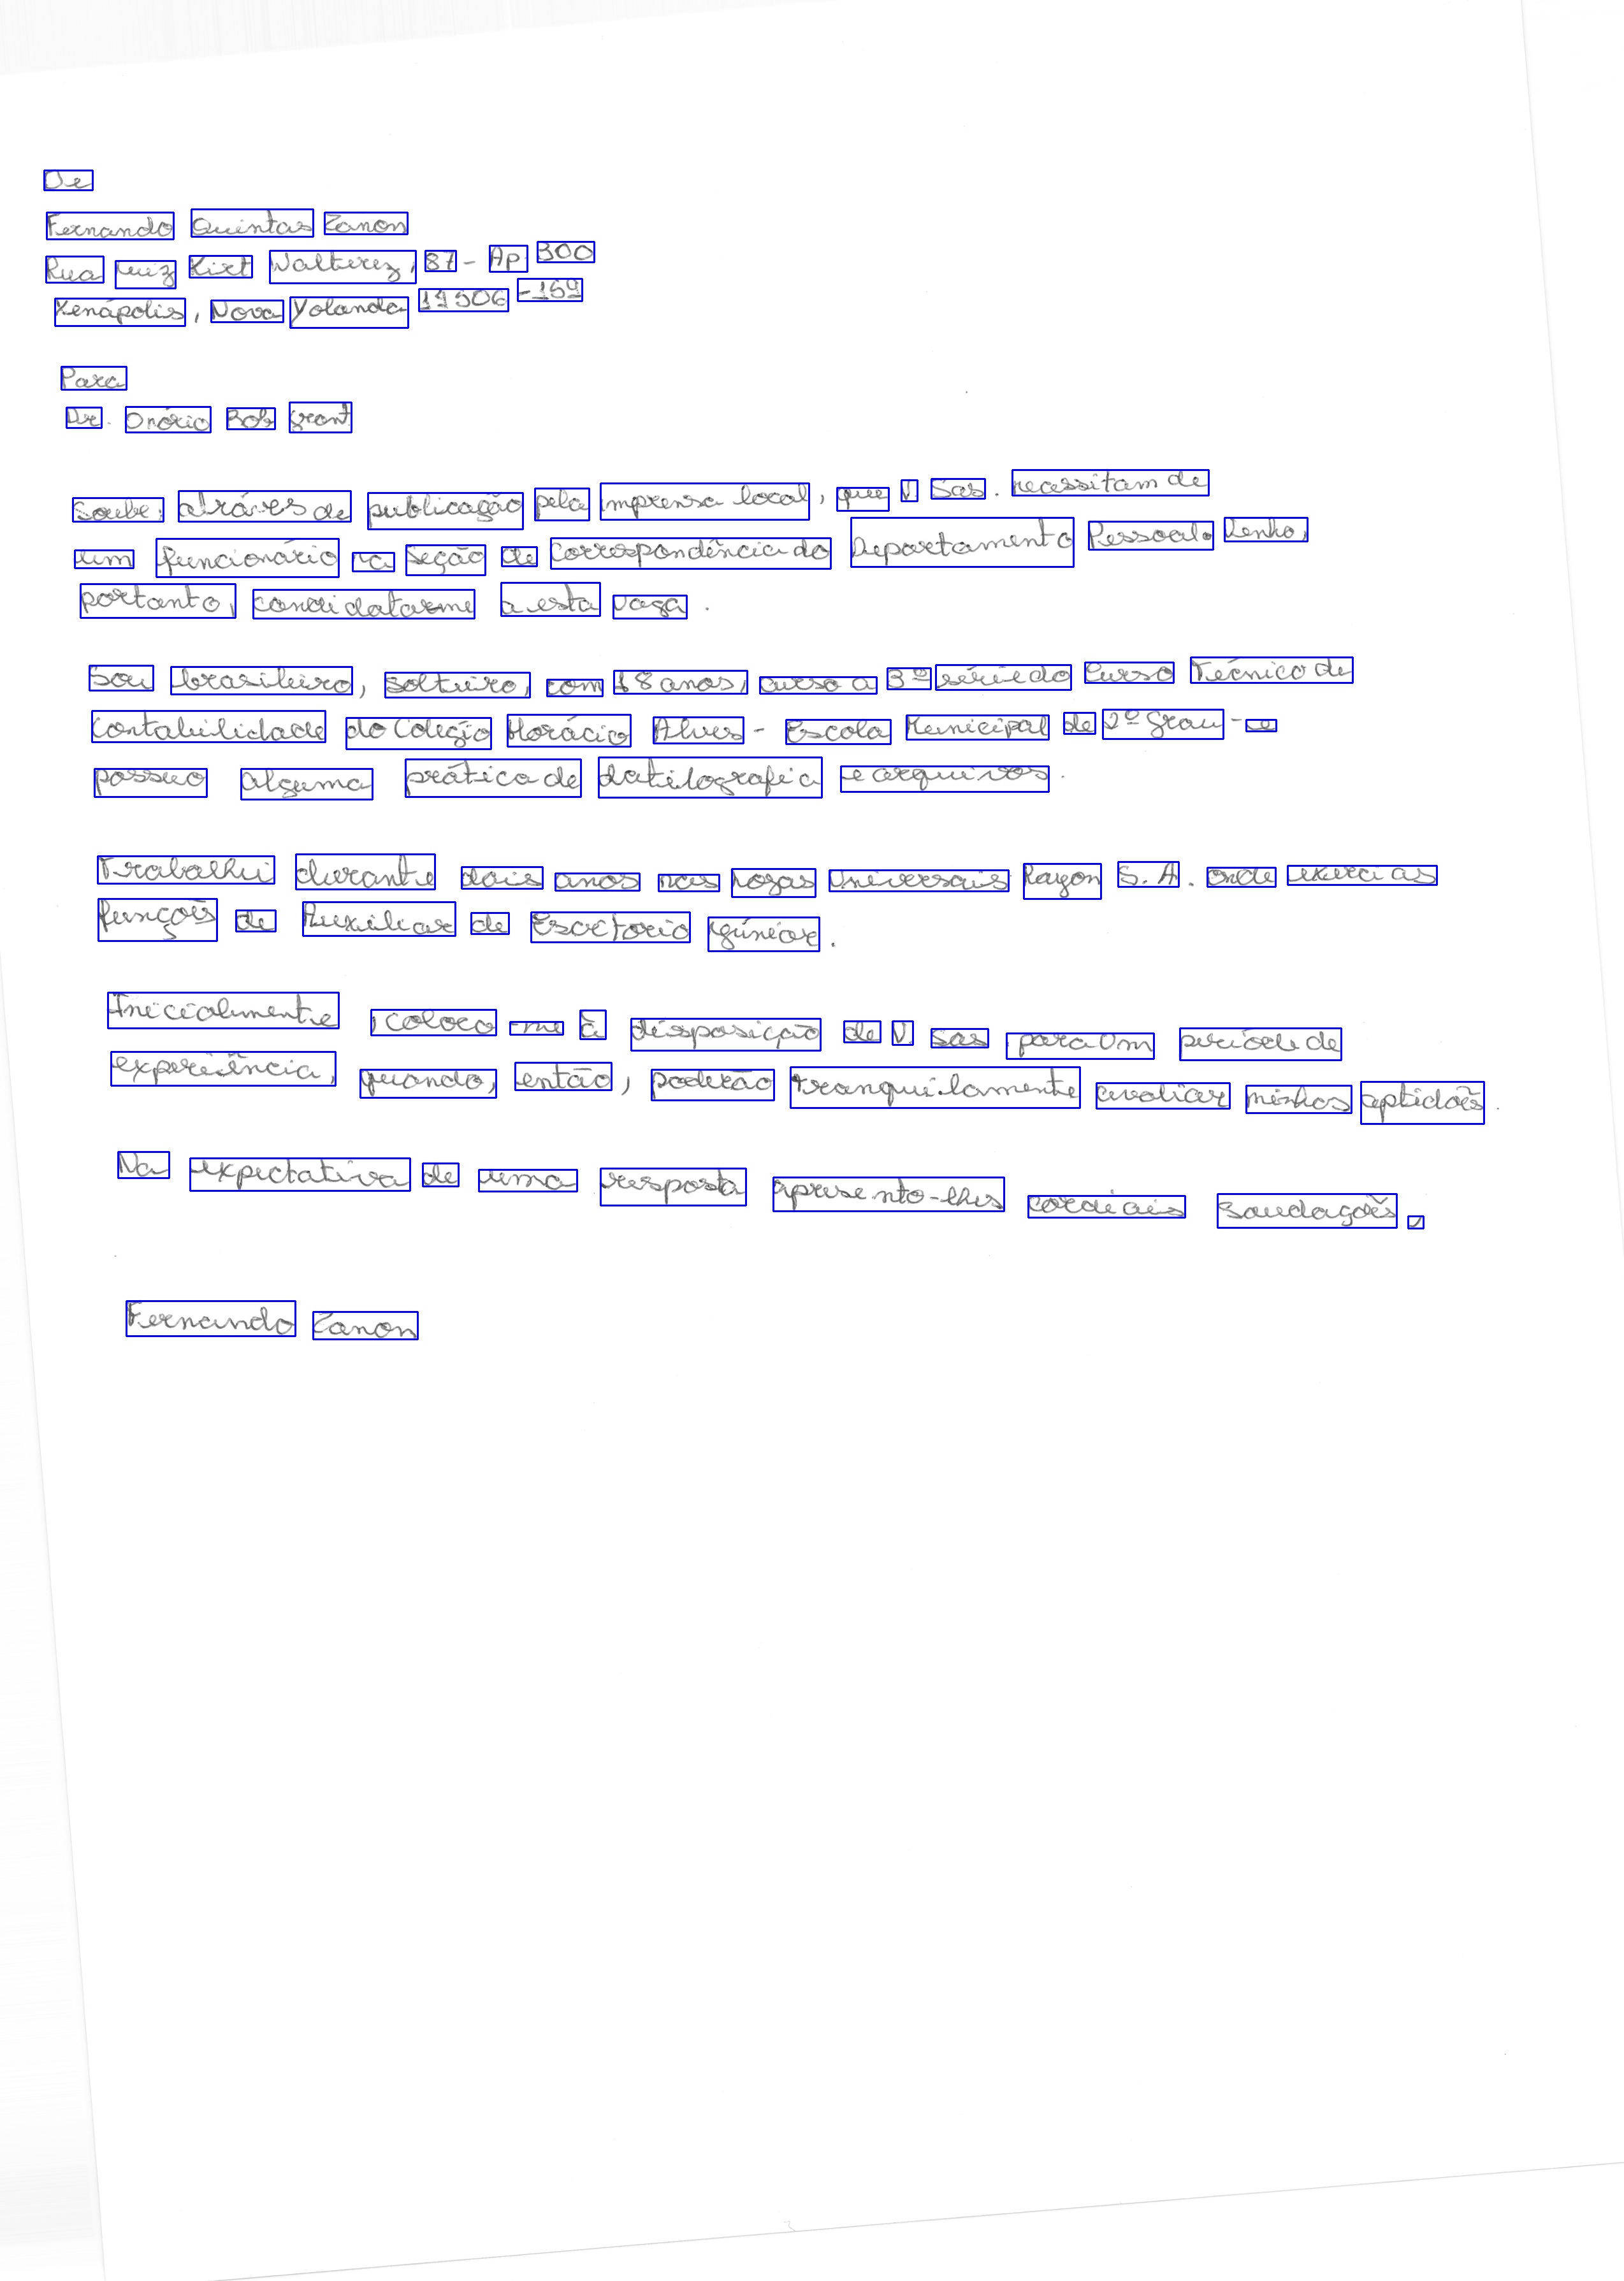 De
Fernando Quintas Zanon
Rua Luiz Kirt Walterez, 87 - Ap 300
Xenápolis, Nova Yolanda 19506-169
Para
Dr. Onório Bob Grant
Soube, atráves de publicação pela imprensa local, que V Sas. necessitam de
um funcionário na Seção de correspondência do Departamento Pessoal. Venho,
portanto, candidatarme a esta vaga.
Sou brasileiro, solteiro, com 18 anos, curso a 3ª série do Curso Técnico de
Contabilidade do Colégio Horácio Alves - Escola Municipal de 2º Grau - e
possuo alguma prática de datilografia e arquivos.
Trabalhei durante dois anos nas Lojas Universais Rayon S.A. onde exerci as
funções de Auxiliar de Escrtorio Júnior.
Inicialmente, coloco-me à disposição de V. Sas para Um períod de
experiência, quando, então, poderão tranquilamente avaliar minhas aptidões.
Na expectativa de uma resposta apresento-lhes cordiais saudações,
Fernando Zanon